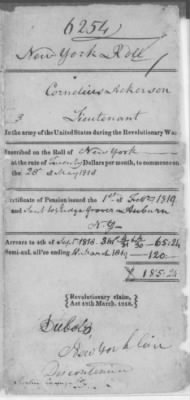 6254
New York Roll
Cornelius Ackerson
Lieutenant
In the army of the United States during the Revolutionary War
Inscribed on the Roll of New York
at the rate of Twenty Dollars per month, to commence on
the 28th of May 1818
Certificate of Pension issued the 1st of Feby 1819
and sent to Judge Grover Auburn
N.Y.
Arrears to 4th of Sept 1818 65.24
Semi-anl. all'ce ending 4 March 1819 120.
$ 185.24
Revolutionary claim,
Act 18th March, 1818.
Dubois
New York Line
Discontinued